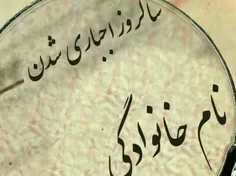 سالروز اجباری شدن
نام خانوادگی